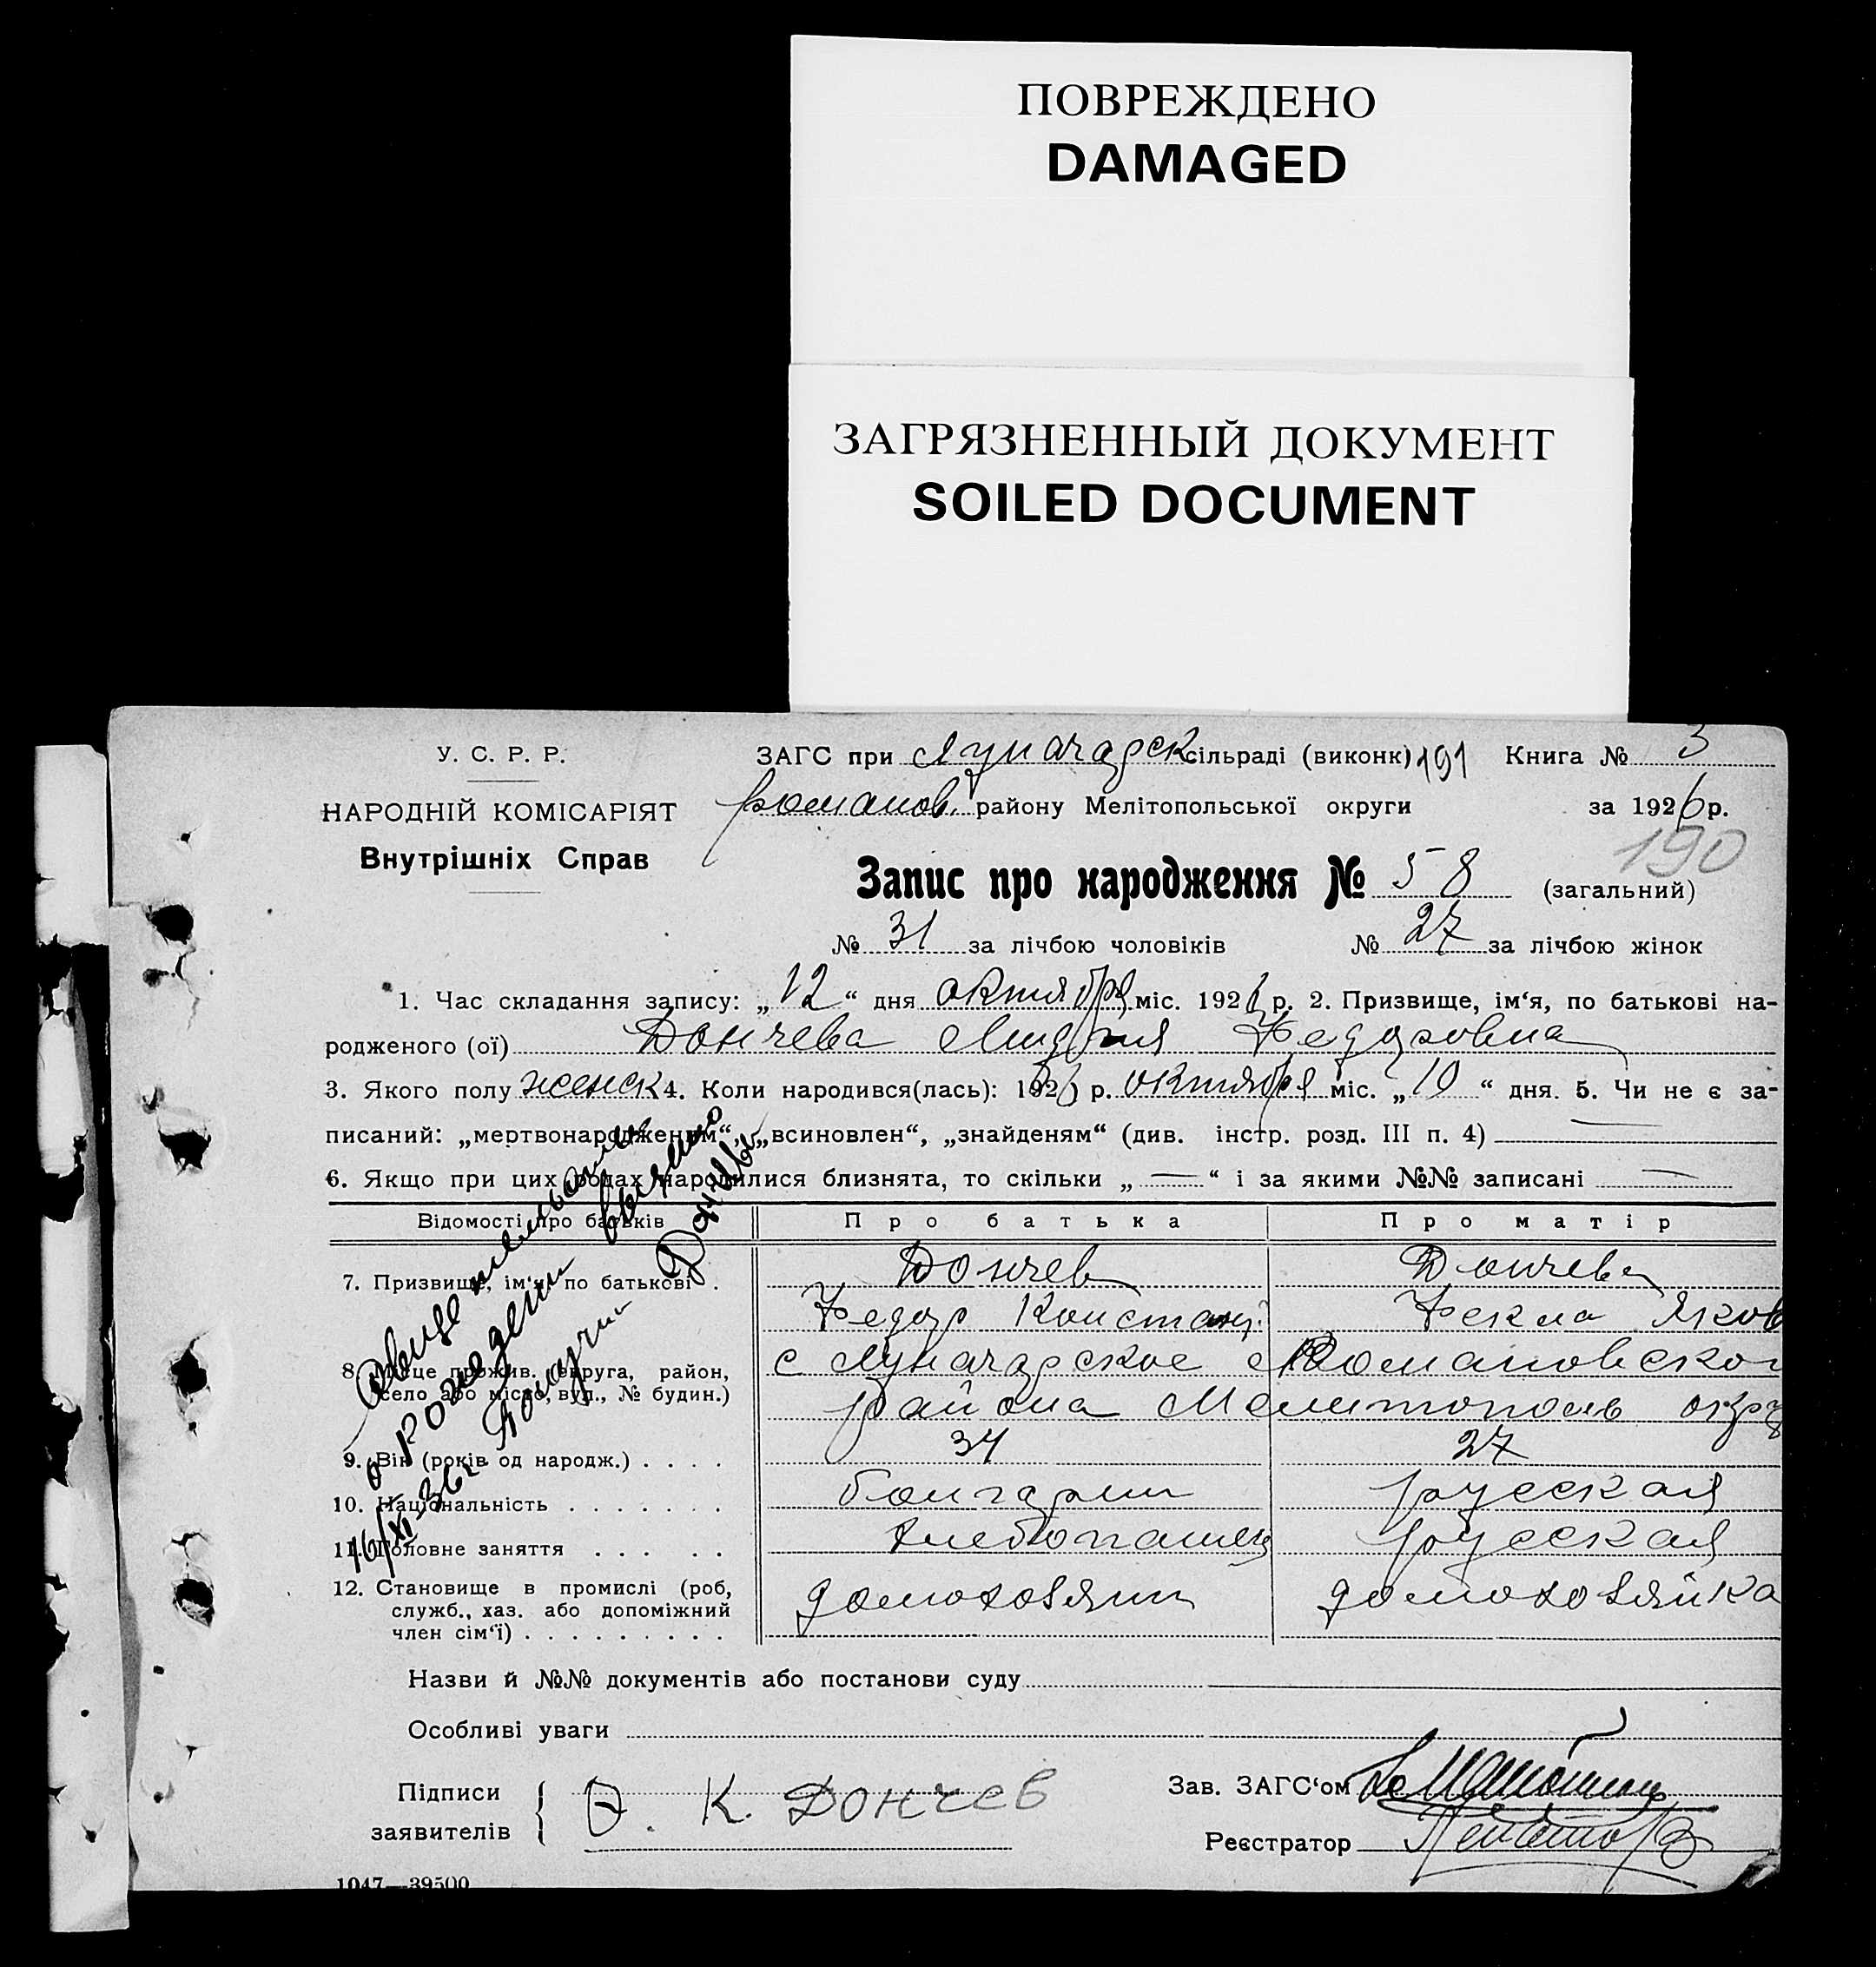 ПОВРЕЖДЕНО
DAMAGED
ЗАГРЯЗНЕННЫЙ ДОКУМЕНТ
SOILED DOCUMENT
У. С. Р. Р.
НАРОДНІЙ КОМІСАРІЯТ
Внутрішніх Справ
ЗАГС при Луначарск сільраді (виконк) 191 Книга № 3
Романов. району Мелітопольської округи за 1926 р.
190
Запис про народження № 58 (загальний)
№ 31 за лічбою чоловіків № 27 за лічбою жінок
1. Час складання запису: „12“ дня октября міс. 1926 р. 2. Призвище, ім‘я, по батькові на-
родженого (ої) Дончева Лидия Федоровна
3. Якого полу женск 4. Коли народився(лась): 1926 р. октября міс. „10“ дня. 5. Чи не є за-
писаний: „мертвонародженим“, „всиновлен“, „знайденям“ (див. інстр. розд. III п. 4) —
6. Якщо при цих родах народилися близнята, то скільки „—“ і за якими №№ записані —
Відомості про батьків Про батька Про матір
7. Призвище, ім‘я, по батькові . Дончев Дончева
Федор Констант. Фекла Яков
8. Місце прожив. (округа, район, с Луначарское Романовског
село або місто, вул., № будин.) района Мелитополь окру
9. Вік (років од народж.) . . . . 34 27
10. Національність . . . . . . . болгарин русская
11. Головне заняття . . . . . хлебопашец русская
12. Становище в промислі (роб, домохозяин домохозяйка
служб., хаз. або допоміжний
член сім‘ї) . . . . . . . . .
о рождении выдано
Получил Дончев
16/XI-36 г
Назви й №№ документів або постанови суду
Особливі уваги
Підписи
заявителів
Ф. К. Дончев
Зав. ЗАГС‘ом
Реєстратор
1047—39500